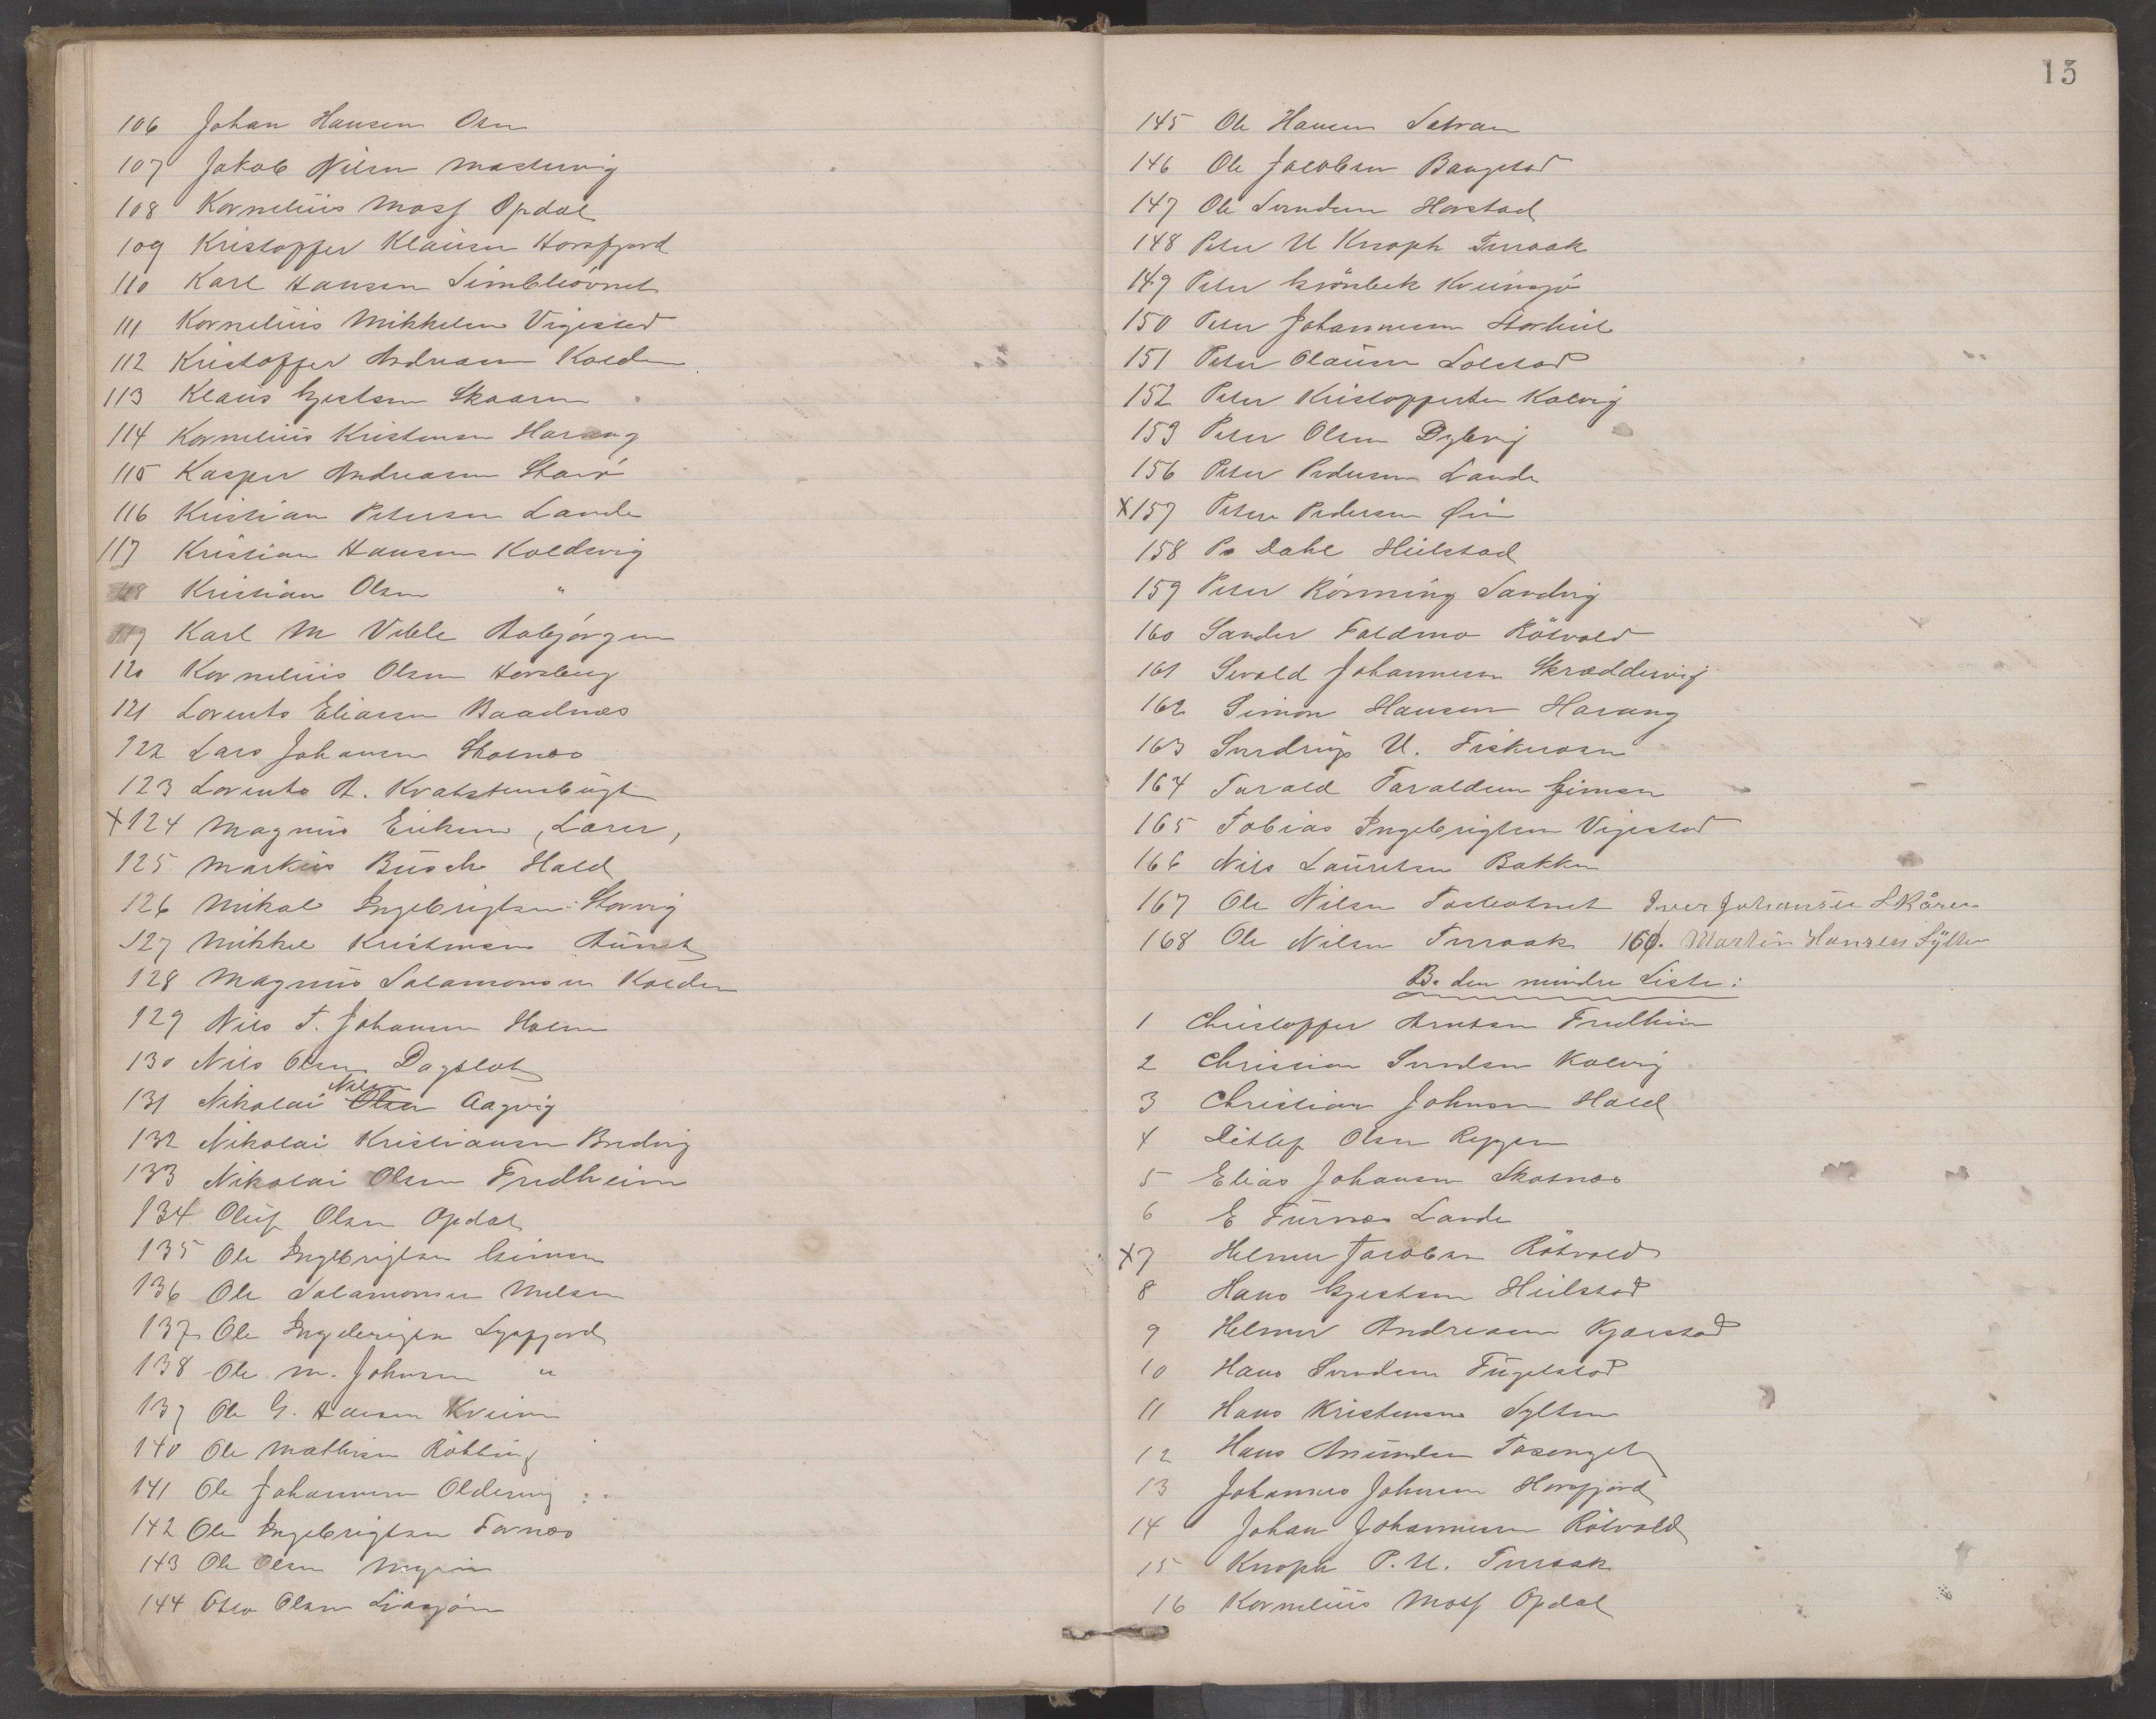 106 Johan Hansen Osen
107 Jakob Nilsen Mastervig
108 Kornelius Moss Opdal
109 Kristoffer Klausen Horsfjord
110 Karl Hansen
111 Kornelius Mikkelsen Vigestad
112 Kristoffer Andreasen Kolden
113 Klaus Gjertsen Skaaren
114 Kornelius Kristensen Harang
115 Kasper Andreasen
116 Kristian Petersen Lande
117 Kristian Hansen Koldevig
118 Kristian Olsen "
119 Karl M Vible Aabjørgen
120 Kornelius Olsen Horsberg
121 Lorents Eliasen Baadnæs
122 Lars Johansen Skotnæs
123 Lorents A.
X 124 Magnus Eriksen, Lærer,
125 Markus Busch Hald
126 Mikal Ingebrigtsen Storvig
127 Mikkel Kristensen Aunet
128 Magnus Salamonsen Kolden
129 Nils T. Johansen Holm
130 Nils Olsen Dagslot
131 Nikolai Olsen Nilsen Aagvig
132 Nikolai Kristiansen Bredvig
133 Nikolai Olsen Fredheim
134 Oluf Olsen Opdal
135 Ole Ingebrigtsen Gimsen
136 Ole Salamonsen Melsen
137 Ole Ingebrigtsen Lysfjord
138 Ole M. Johnsen "
139 Ole G. Hansen Kveim
140 Ole Mathisen Røtting
141 Ole Johannesen Oldervig
142 Ole Ingebrigtsen Fornæs
143 Ole Olsen
144 Otto Olsen Liasjøen
15
145 Ole Hansen Salvan
146 Ole Jacobsen Baugstad
147 Ole Svendsen Horstad
148 Peter U Knoph Terraak
149 Peter Grönbek Kveinsjö
150 Peter Johannesen Storheil
151 Peter Olausen Solstad
152 Peter Kristoppersen Kalvig
153 Peter Olsen Dybvig
156 Peter Pedersen Lande
X 157 Peter Pedersen
158 Ps Dahl Heilstad
159 Peter Rønning Sandvig
160 Sander Foldmo Røtvold
161 Sivald Johannesen Skræddervig
162 Simon Hansen Harang
163 Sverdrup U. Fiskerosen
164 Tarald Taraldsen Gimsen
165 Tobias Ingebrigtsen Vigestad
166 Nils Lauritsen Bakken
167 Ole Nilsen Tosbotnet Iver Johansen Skåren
168 Ole Nilsen Terraak 160. Martin Hansen Sylten
B. den mindre Liste:
1 Christoffer Arntsen Fredheim
2 Christian Svendsen Kalvig
3 Christian Johnsen Hald
4 Ditlef Olsen Reppen
5 Elias Johansen Skotnæs
6 E Furnæs Lande
X 7 Helmer Jacobsen Røtvold
8 Hans Gjertsen Heilstad
9 Helmer Andreasen Kjærstad
10 Hans Svendsen Fugelstad
11 Hans Kristensen Sylten
12 Hans Amundsen Tosenget
13 Johannes Johnsen Horsfjord
14 Johan Johannesen Røtvold
15 Knoph P. U. Terraak
16 Kornelius Moss Opdal